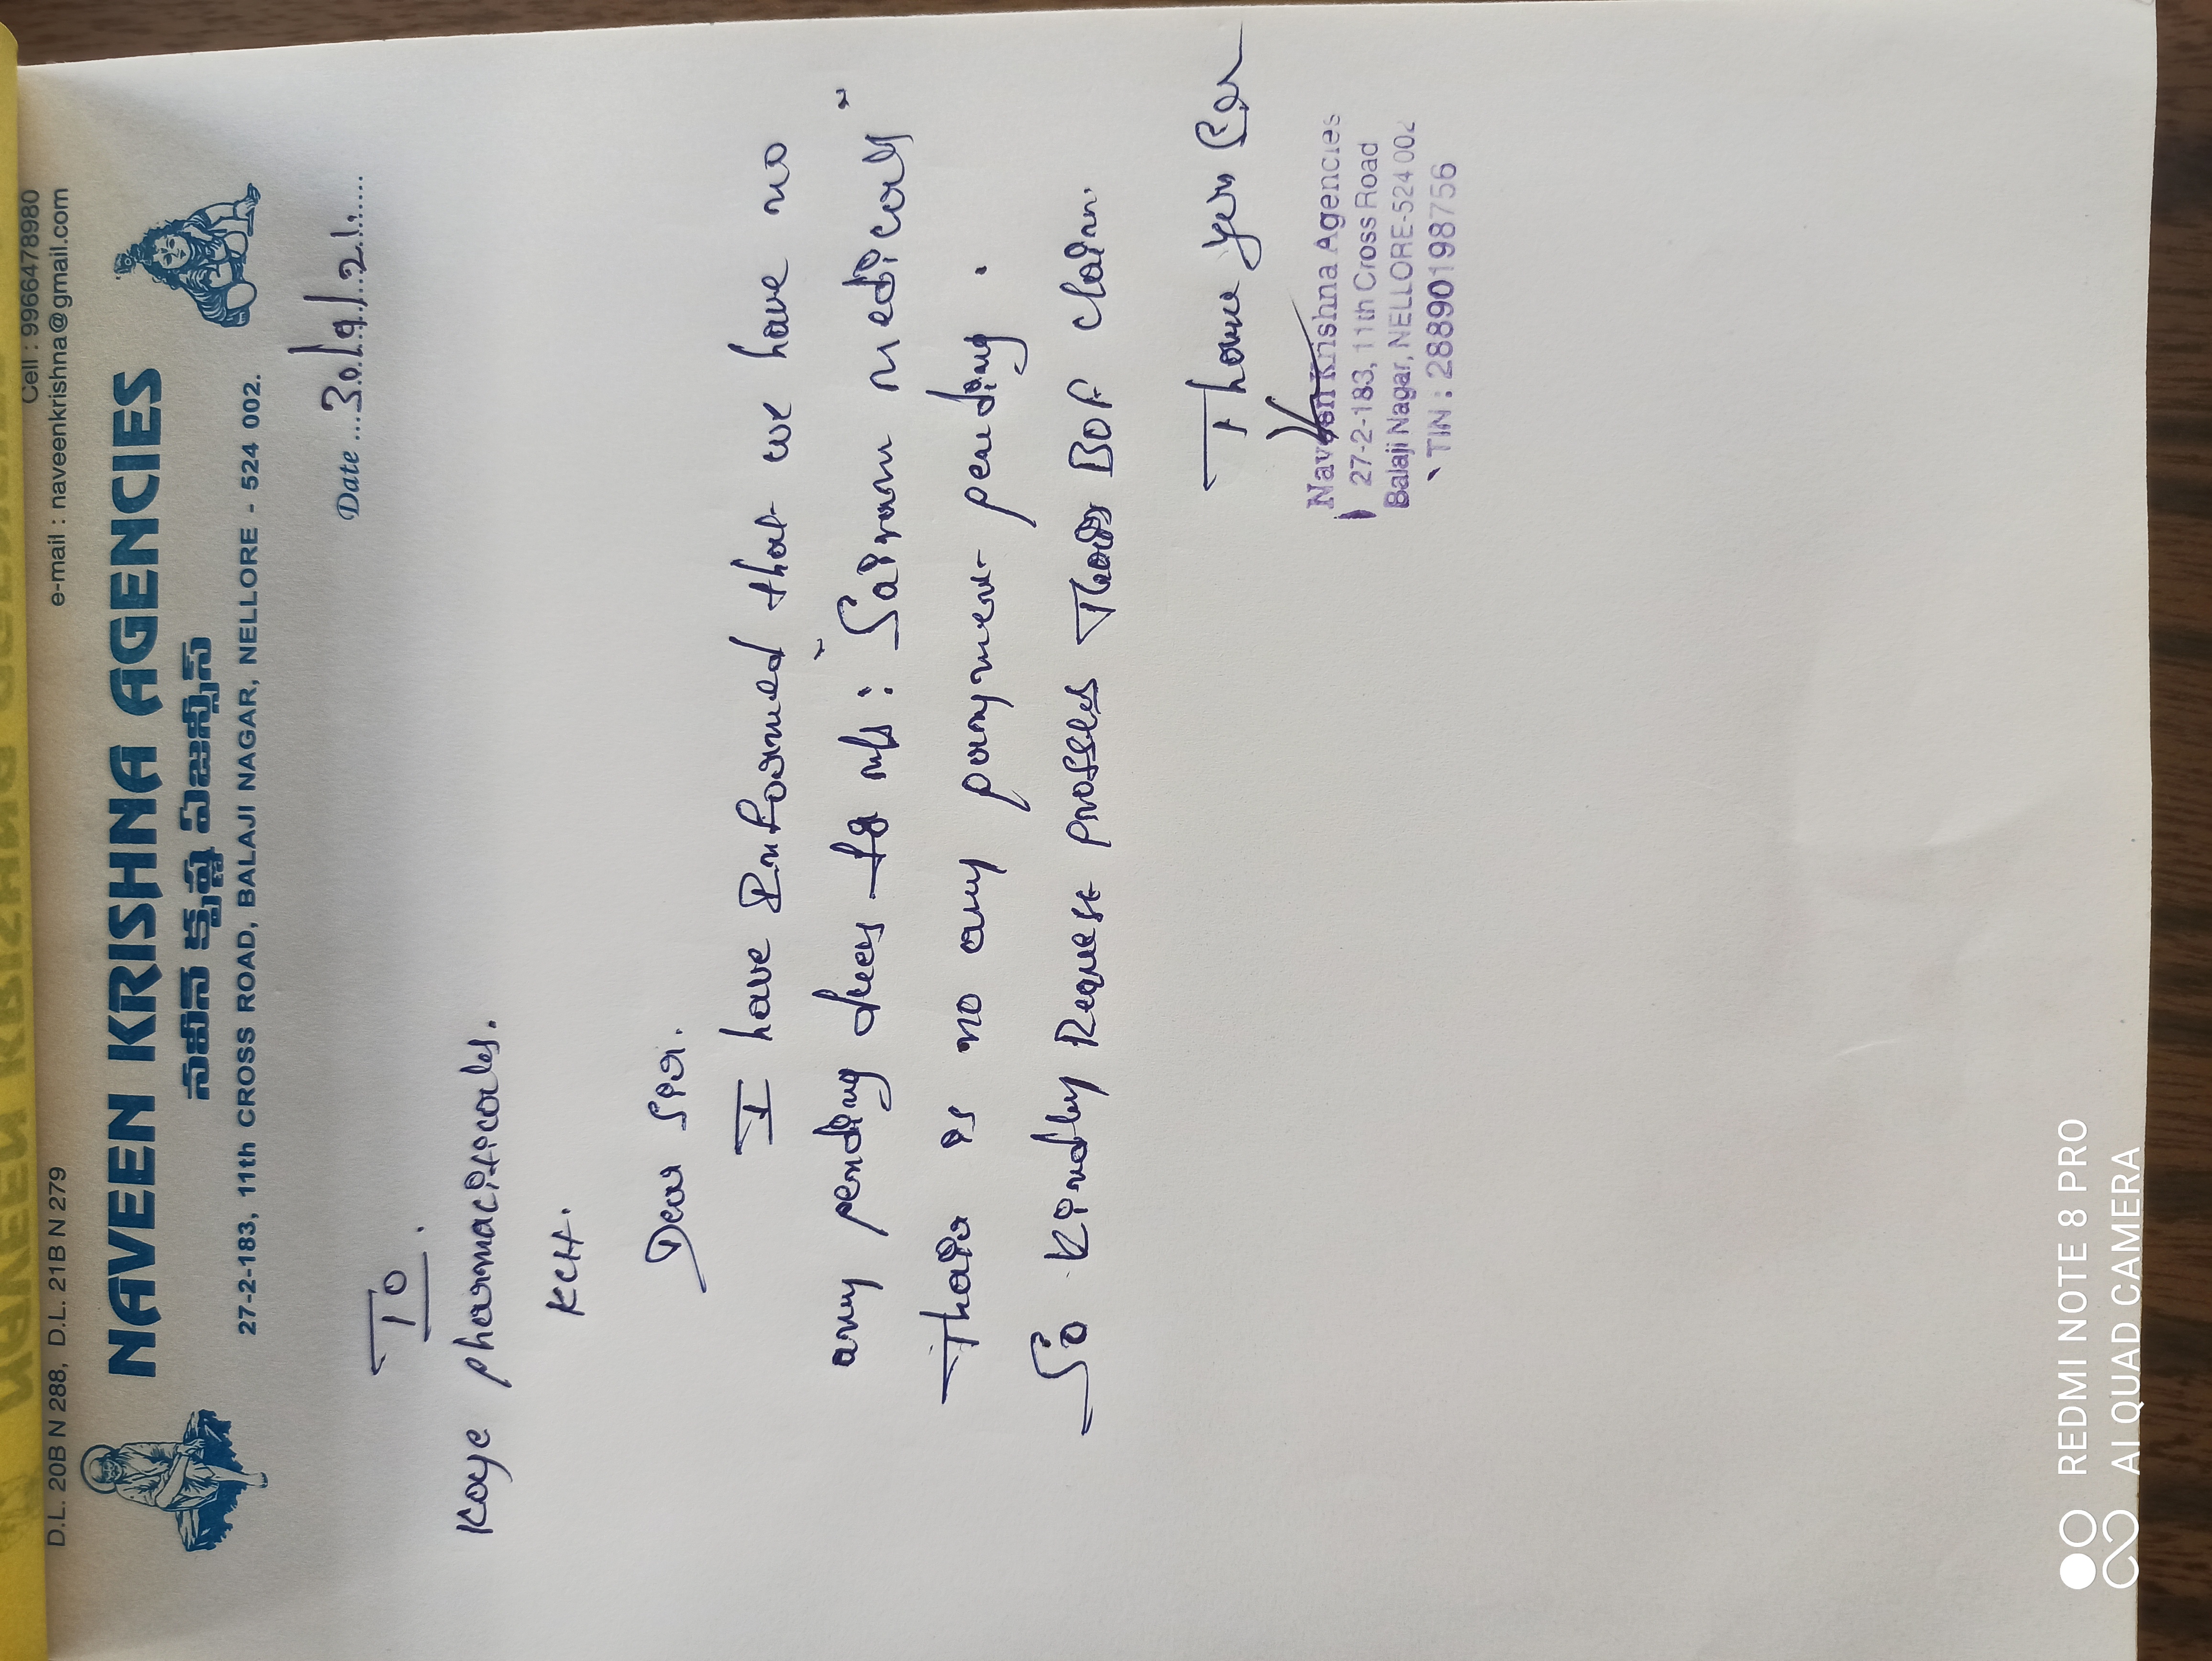 Cell : 9966478980
D.L. 20B N 288, D.L. 21B N 279
e-mail : naveenkrishna@gmail.com
NAVEEN KRISHNA AGENCIES
నవీన్ క్రిష్ణ ఏజన్సీస్
27-2-183, 11th CROSS ROAD, BALAJI NAGAR, NELLORE - 524 002.
Date ....30/9/21......
To.
Kaye pharmaciticals.
KCH.
Dear Sir.
I have Informed that we have no
any pending dues to M/s: "Sairam medicals"
Thair is no any payment pending.
So Kindly Request prosses Thair BOF claim.
Thank you Sir
Naveen Krishna Agencies
27-2-183, 11th Cross Road
Balaji Nagar, NELLORE-524 002
TIN : 28890198756
REDMI NOTE 8 PRO
AI QUAD CAMERA